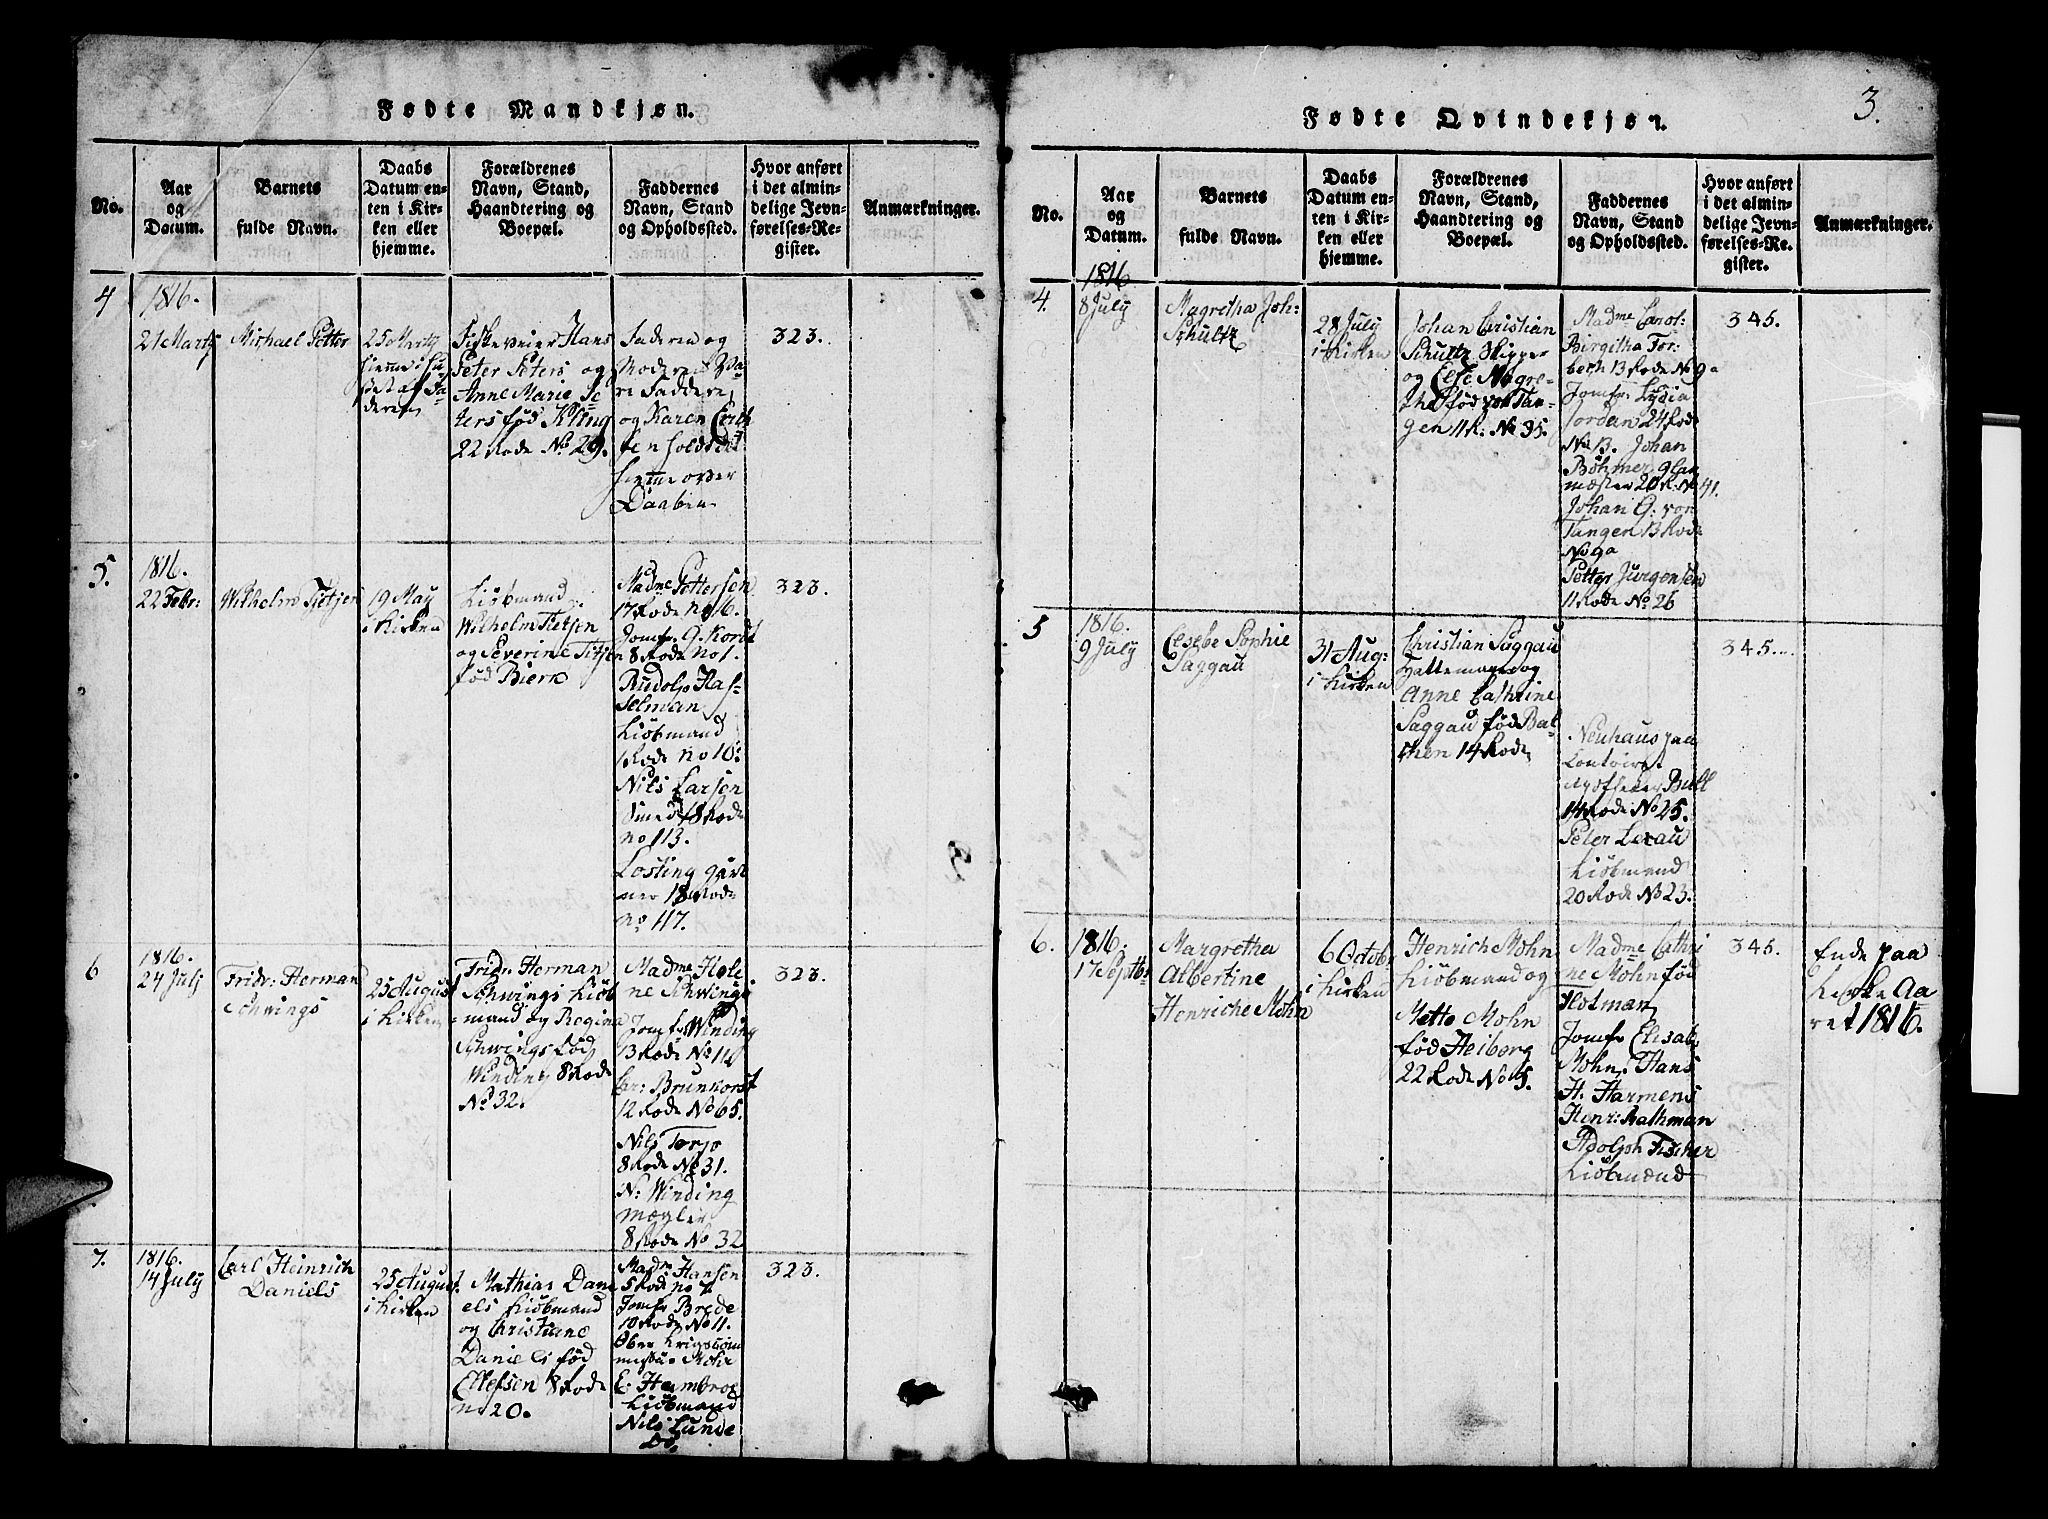 Fødte Mandkjøn.
No.
Aar
og
Datum.
Barnets
fulde Navn.
Daabs
Datum en-
ten i Kir-
ken eller
hjemme.
Forældrenes
Navn, Stand,
Haandtering og
Boepæl.
Faddernes
Navn, Stand
og Opholdssted.
Hvor anført
i det almin-
delige Jevn-
førelses-Re-
gister.
Anmærkninger.
4
1816.
21 Marty
Michael Petter
25 Marty
hjemme i Hu-
set af Fa-
deren
Hans
Peter Peters og
Anne Marie Pe-
ters fød Kling
22 Rode No 29.
Faderen og
Moderen Va-
re Faddere,
og Karen
holdt det
hjemme over
Daaben
323.
5.
1816.
22 Febr:
Wilhelm Tietjen
19 May
i Kirken
Kiöbmand
Wilhelm Tietjen
og Severine Titjen
fød Bierk
Madme Pettersen
17 Rode no 16.
Jomfr. G. Kordt
8 Rode no 1.
Rudolp Has-
selman
Kiöbmand
1 Rode no 10.
Nils Larsen
Smed 18 Rode
no 113.
Losting gart
ner 18 Rode
no 117.
323.
6
1816.
24 July
Fridr: Herman
Schwings
25 August
i Kirken
Fridr: Herman
Schwings Kiöb
mand og Regina
Schwings fød
Winding 8 Rode
No 32.
Madme Hele
ne Schwings
Jomfr Winding
13 Rode No 11
Car: Brunkorst
12 Rode No 65.
Nils Torjo
8 Rode No 31.
N: Winding
mægler
8 Rode No 32
323.
7.
1816.
14 July
Carl Heinrich
Daniels
25 August.
i Kirken
Mathias Dani
els Kiöbmand
og Christiane
Daniels fød
Ellefsen 8 Rode
no 20.
Madm Hansen
5 Rode no 7
Jomfr Brede
10 Rode No 11.
Ober Krigscom
missær Mohr
E. Hambroe
Kiöbmand
Nils Lunde
Do.
323.
3.
Fødte Qvindekjøn.
No.
Aar
og
Datum.
Barnets
fulde Navn.
Daabs
Datum en-
ten i Kir-
ken eller
hjemme.
Forældrenes
Navn, Stand,
Haandtering og
Boepæl.
Faddernes
Navn, Stand
og Opholdssted.
Hvor anført
i det almin-
delige Jevn-
førelses-Re-
gister.
Anmærkninger.
4.
1816
8 July
Magretha Joh:
Schultz
28 July
i Kirken
Johan Cristian
Schultz Skipper
og Else Magre-
tha fød von Tan-
gen 11 R: No 35.
Madme Carol:
Birgitha Tor-
berh 13 Rode No 9a
Jomfr. Lydia
Jordan 24 Rode
No 13. Johan
Böhmer glar
mæster 20 R: No 41.
Johan G: von
Tangen 13 Rode
No 9a
Petter Jurgensen
11 Rode No 26
345.
5
1816.
9 July
Cesebe Sophie
Saggau
31 Aug:
i Kirken
Christian Saggau
Hattemager og
Anne Cathrine
Saggau fød Bat
chen 14 Rode
Neuhaus paa
Contoiret
Apotheker Bull
14 Rode No 25.
Peter Lexau
Kiöbmand
20 Rode No 23.
345.
6.
1816.
17 Septbr
Margretha
Albertine
Henriche Mohn
6 Octobr
i Kirken
Henrich Mohn
Kiöbmand og
Mette Mohn
fød Heiberg
22 Rode No 5.
Madme Cathri
ne Mohn fød
Holtman
Jomfr Elisab:
Mohn. Hans
H. Harmens
Henr: Rathman
Adolph Fischer
Kiöbmænd
345.
Ende paa
Kirke Aa
ret 1816.